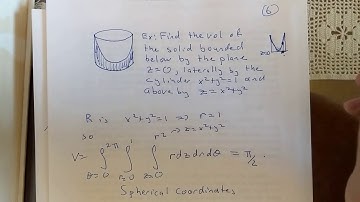 6
Ex: Find the vol of
the solid bounded
below by the plane
z=0, laterally by the
cylinder x²+y²=1 and
above by z=x²+y²
z=0
R is x²+y²=1 ⇒ r=1
so r² → z=x²+y²
V= ∫ 2π ∫ 1 ∫ r dz dr dθ = π/2.
θ=0 r=0 z=0
Spherical Coordinates